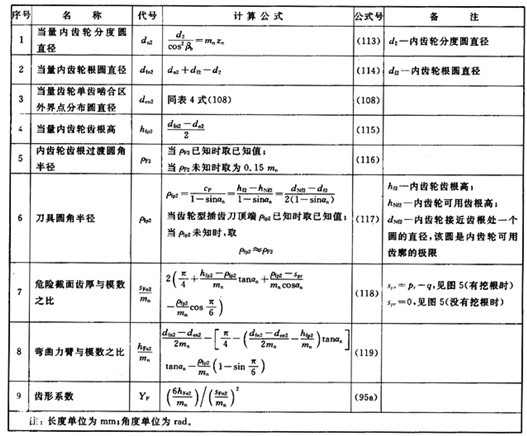 序号 名 称 代号 计 算 公 式 公式号 备 注
1 当量内齿轮分度圆直径 d_n2 d_2/cos²β_b = m_n z_n (113) d_2—内齿轮分度圆直径
2 当量内齿轮根圆直径 d_fn2 d_n2+d_f2−d_2 (114) d_f2—内齿轮根圆直径
3 当量齿轮单齿啮合区外界点分布圆直径 d_en2 同表 4 式(108) (108)
4 当量内齿轮齿根高 h_fp2 (d_fn2−d_n2)/2 (115)
5 内齿轮齿根过渡圆角半径 ρ_F2 当 ρ_F2 已知时取已知值;
当 ρ_F2 未知时取为 0.15 m_n (116)
6 刀具圆角半径 ρ_fp2 ρ_fp2 = c_P/(1−sinα_n) = (h_f2−h_Nf2)/(1−sinα_n) = (d_Nf2−d_f2)/(2(1−sinα_n))
当齿轮型插齿刀顶端 ρ_fp2 已知时取已知值;
当 ρ_fp2 未知时,取
ρ_fp2≈ρ_F2
(117)
h_f2—内齿轮齿根高;
h_Nf2—内齿轮可用齿根高;
d_Nf2—内齿轮接近齿根处一个圆的直径,该圆是内齿轮可用齿廓的极限
7 危险截面齿厚与模数之比 s_Fn2/m_n 2(π/4 + (h_fp2−ρ_fp2)/m_n tanα_n + (ρ_fp2−s_pr)/(m_n cosα_n)
− ρ_fp2/m_n cos π/6) (118)
s_pr=p_r−q,见图 5(有挖根时)
s_pr=0,见图 5(没有挖根时)
8 弯曲力臂与模数之比 h_Fe2/m_n (d_fn2−d_en2)/(2m_n) − [π/4 − ((d_fn2−d_en2)/(2m_n) − h_fp2/m_n)tanα_n]
tanα_n − ρ_fp2/m_n (1−sin π/6) (119)
9 齿形系数 Y_F (6h_Fe2/m_n)/(s_Fn2/m_n)² (95a)
注:长度单位为 mm;角度单位为 rad。